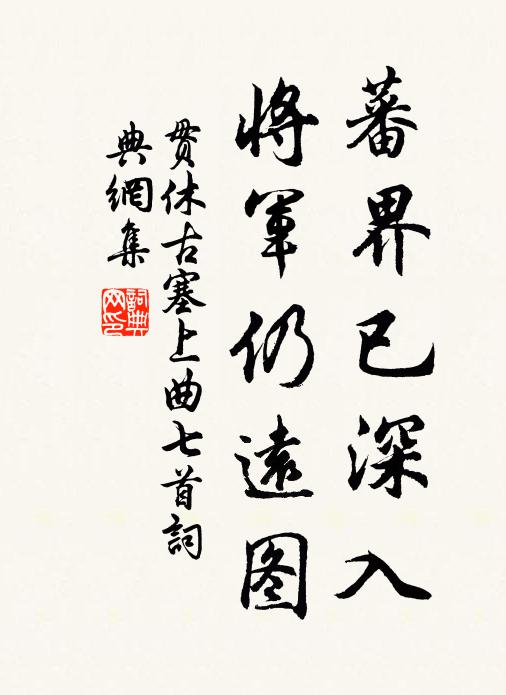 蕃界已深入
將軍仍遠图
貫休古塞上曲七首詞
典網集
詞典
网印